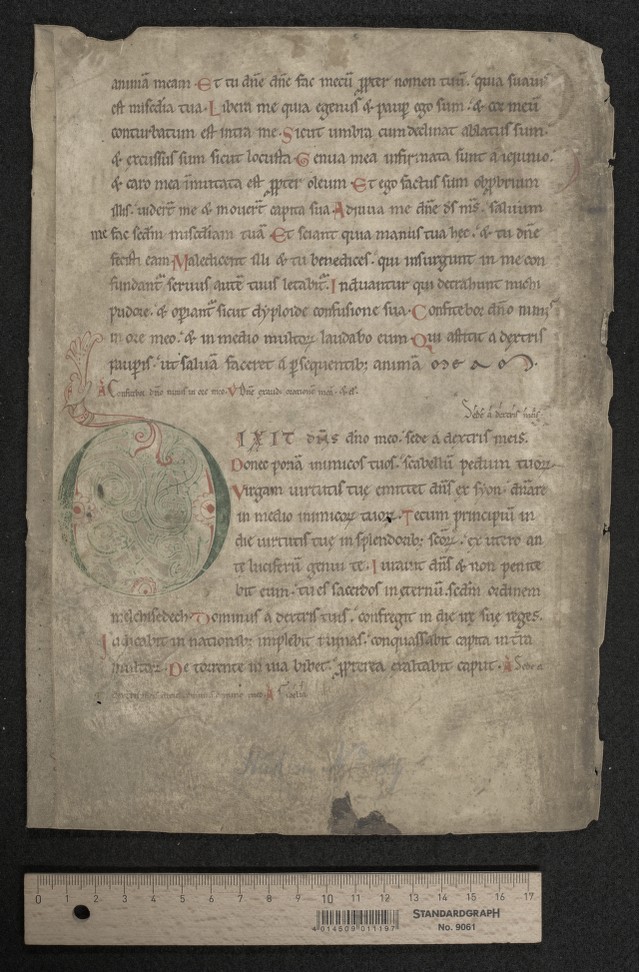 animā meam. Et tu dñe dñe fac mecū ꝓpter nomen tuū. quia suauis
est misċdia tua. Libera me quia egenus & paup ego sum. & cor meū
conturbatum est intra me. Sicut umbra cum declinat ablatus sum.
& excussus sum sicut locusta. Genua mea infirmata sunt a ieiunio.
& caro mea īmutata est ꝓpter oleum. Et ego factus sum obꝓbrium
illis. uidert̄ me & mouert̄ capita sua. Adiuua me dñe ds ms̄. saluum
me fac scdm misċdiam tuā. Et sciant quia manus tua hec. & tu dñe
fecisti eam. Maledicent illi & tu benedices. qui insurgunt in me con
fundant̄ seruus autē tuus letabit̄. Induantur qui detrahunt michi
pudore. & opiant̄ sicut dyploide confusione sua. Confitebor dño nimis
in ore meo. & in medio multoꝝ laudabo eum. Qui astitit a dextris
paupis. ut saluā faceret a ꝑsequentib; animā
A Confitebor dño nimis in ore meo. V Dñe exaudi orationem meā.
Sede a dextris
DIXIT dñs dño meo. sede a dextris meis.
Donec ponā inimicos tuos. scabellū pedum tuoꝝ.
Virgam uirtutis tuę emittet dñs ex syon. dñare
in medio inimicoꝝ tuoꝝ. Tecum principiū in
die uirtutis tuę in splendorib; scoꝝ. ex utero an
te luciferū genui te. Iurauit dñs & non penite
bit eum. tu es sacerdos in eternū. scdm ordinem
melchisedech. Dominus a dextris tuis. confregit in die irę suę reges.
Iudicabit in nationib; implebit ruinas. conquassabit capita in tr̄a
multoꝝ. De torrente in uia bibet. ꝓpterea exaltabit caput. A Sede a
0 1 2 3 4 5 6 7 8 9 10 11 12 13 14 15 16 17
4 014509 011197
STANDARDGRAPH
No. 9061